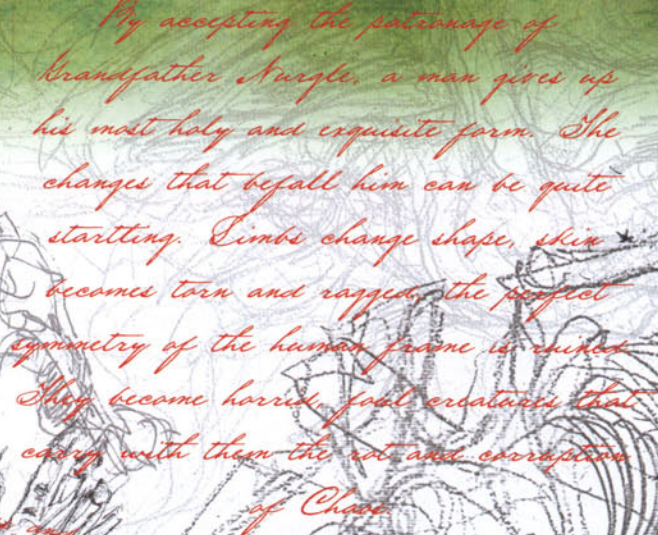 By accepting the patronage of
Grandfather Nurgle, a man gives up
his most holy and exquisite form. The
changes that befall him can be quite
startling. Limbs change shape, skin
becomes torn and ragged, the perfect
symmetry of the human frame is ruined.
They become horrid, foul creatures that
carry with them the rot and corruption
of Chaos.
and